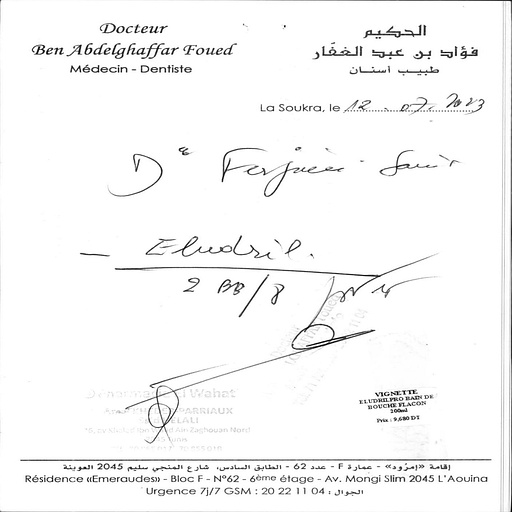 Docteur
Ben Abdelghaffar Foued
Médecin - Dentiste
الحكيم
فؤاد بن عبد الغفّار
طبيب أسنان
La Soukra, le 12.07.2023
Eludril.
2 BB/8
VIGNETTE
ELUDRILPRO BAIN DE
BOUCHE FLACON
200ml
Prix : 9,680 DT
إقامة «إمرُود» - عمارة F - عدد 62 - الطابق السادس، شارع المنجي سليم 2045 العوينة
Résidence «Emeraudes» - Bloc F - N°62 - 6ème étage - Av. Mongi Slim 2045 L'Aouina
Urgence 7j/7 GSM : 20 22 11 04 : الجوال